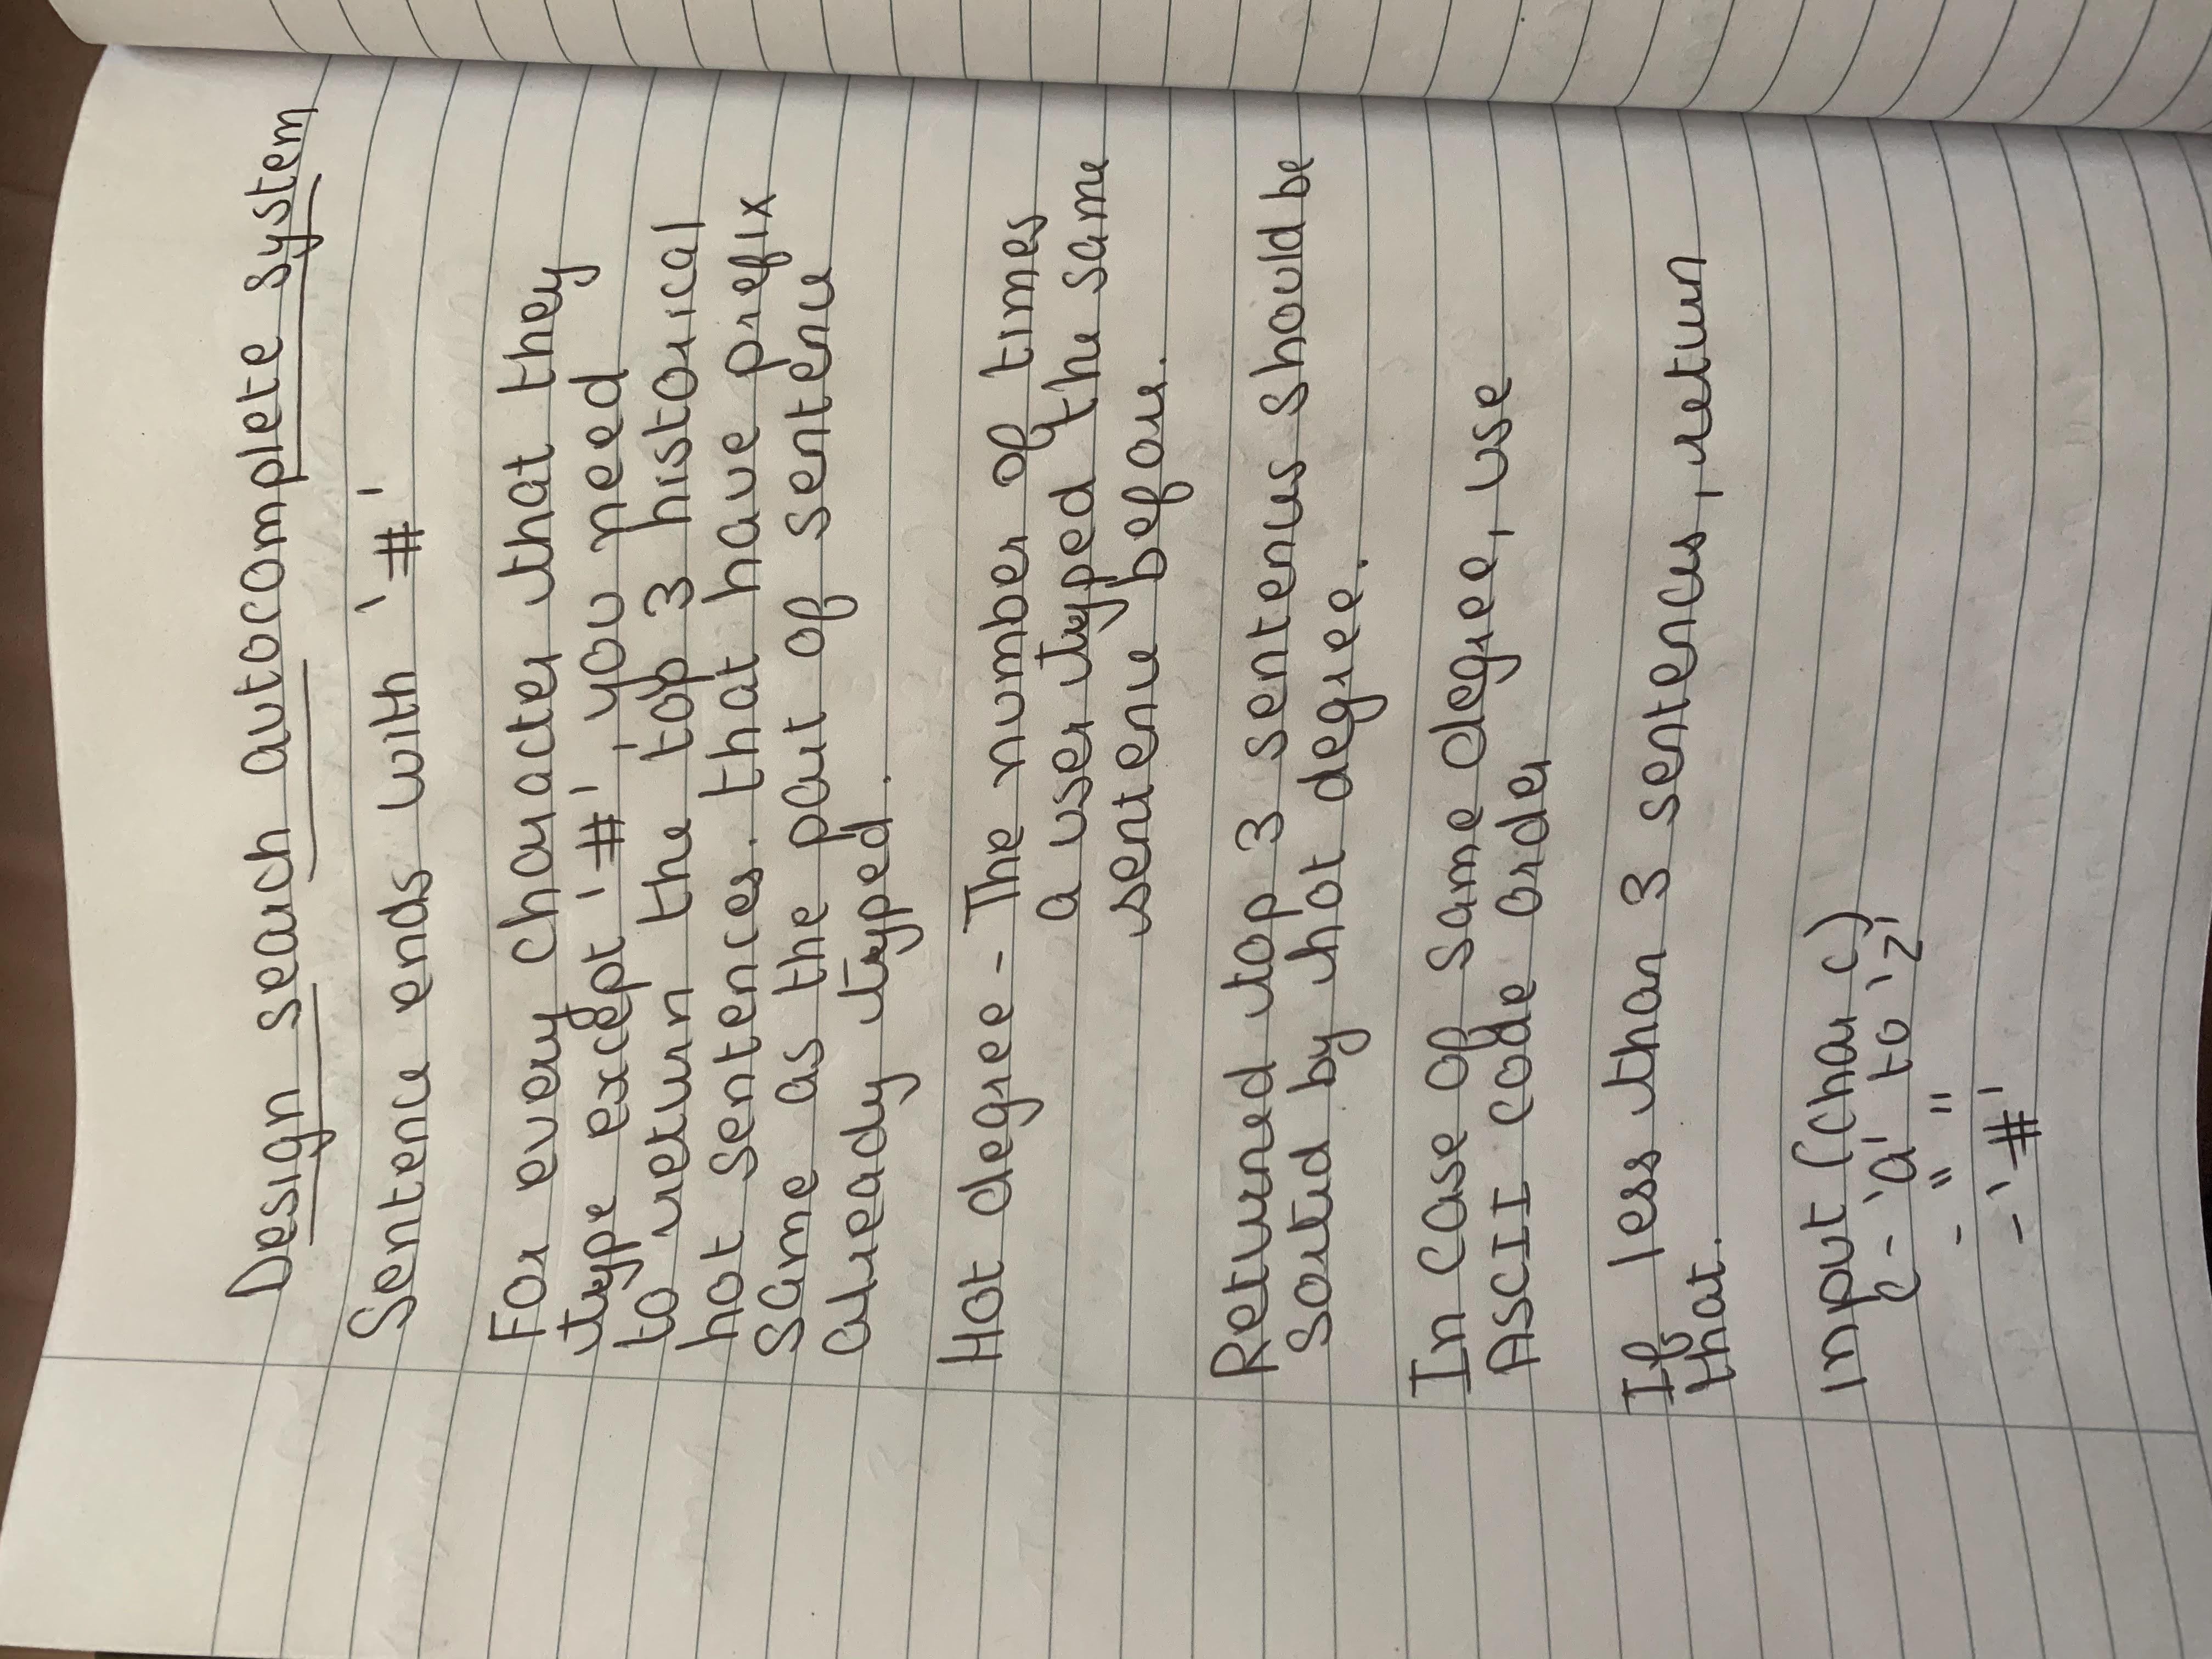 Design search autocomplete system
Sentence ends with '#'
For every character that they
type except '#', you need
to return the top 3 historical
hot sentences. that have prefix
same as the part of sentence
already typed.
Hot degree - The number of times
a user typed the same
sentence before.
Returned top 3 sentences should be
sorted by hot degree.
In case of same degree, use
ASCII code order
If less than 3 sentences, return
that.
input (char c)
c - 'a' to 'z'
- " "
- '#'